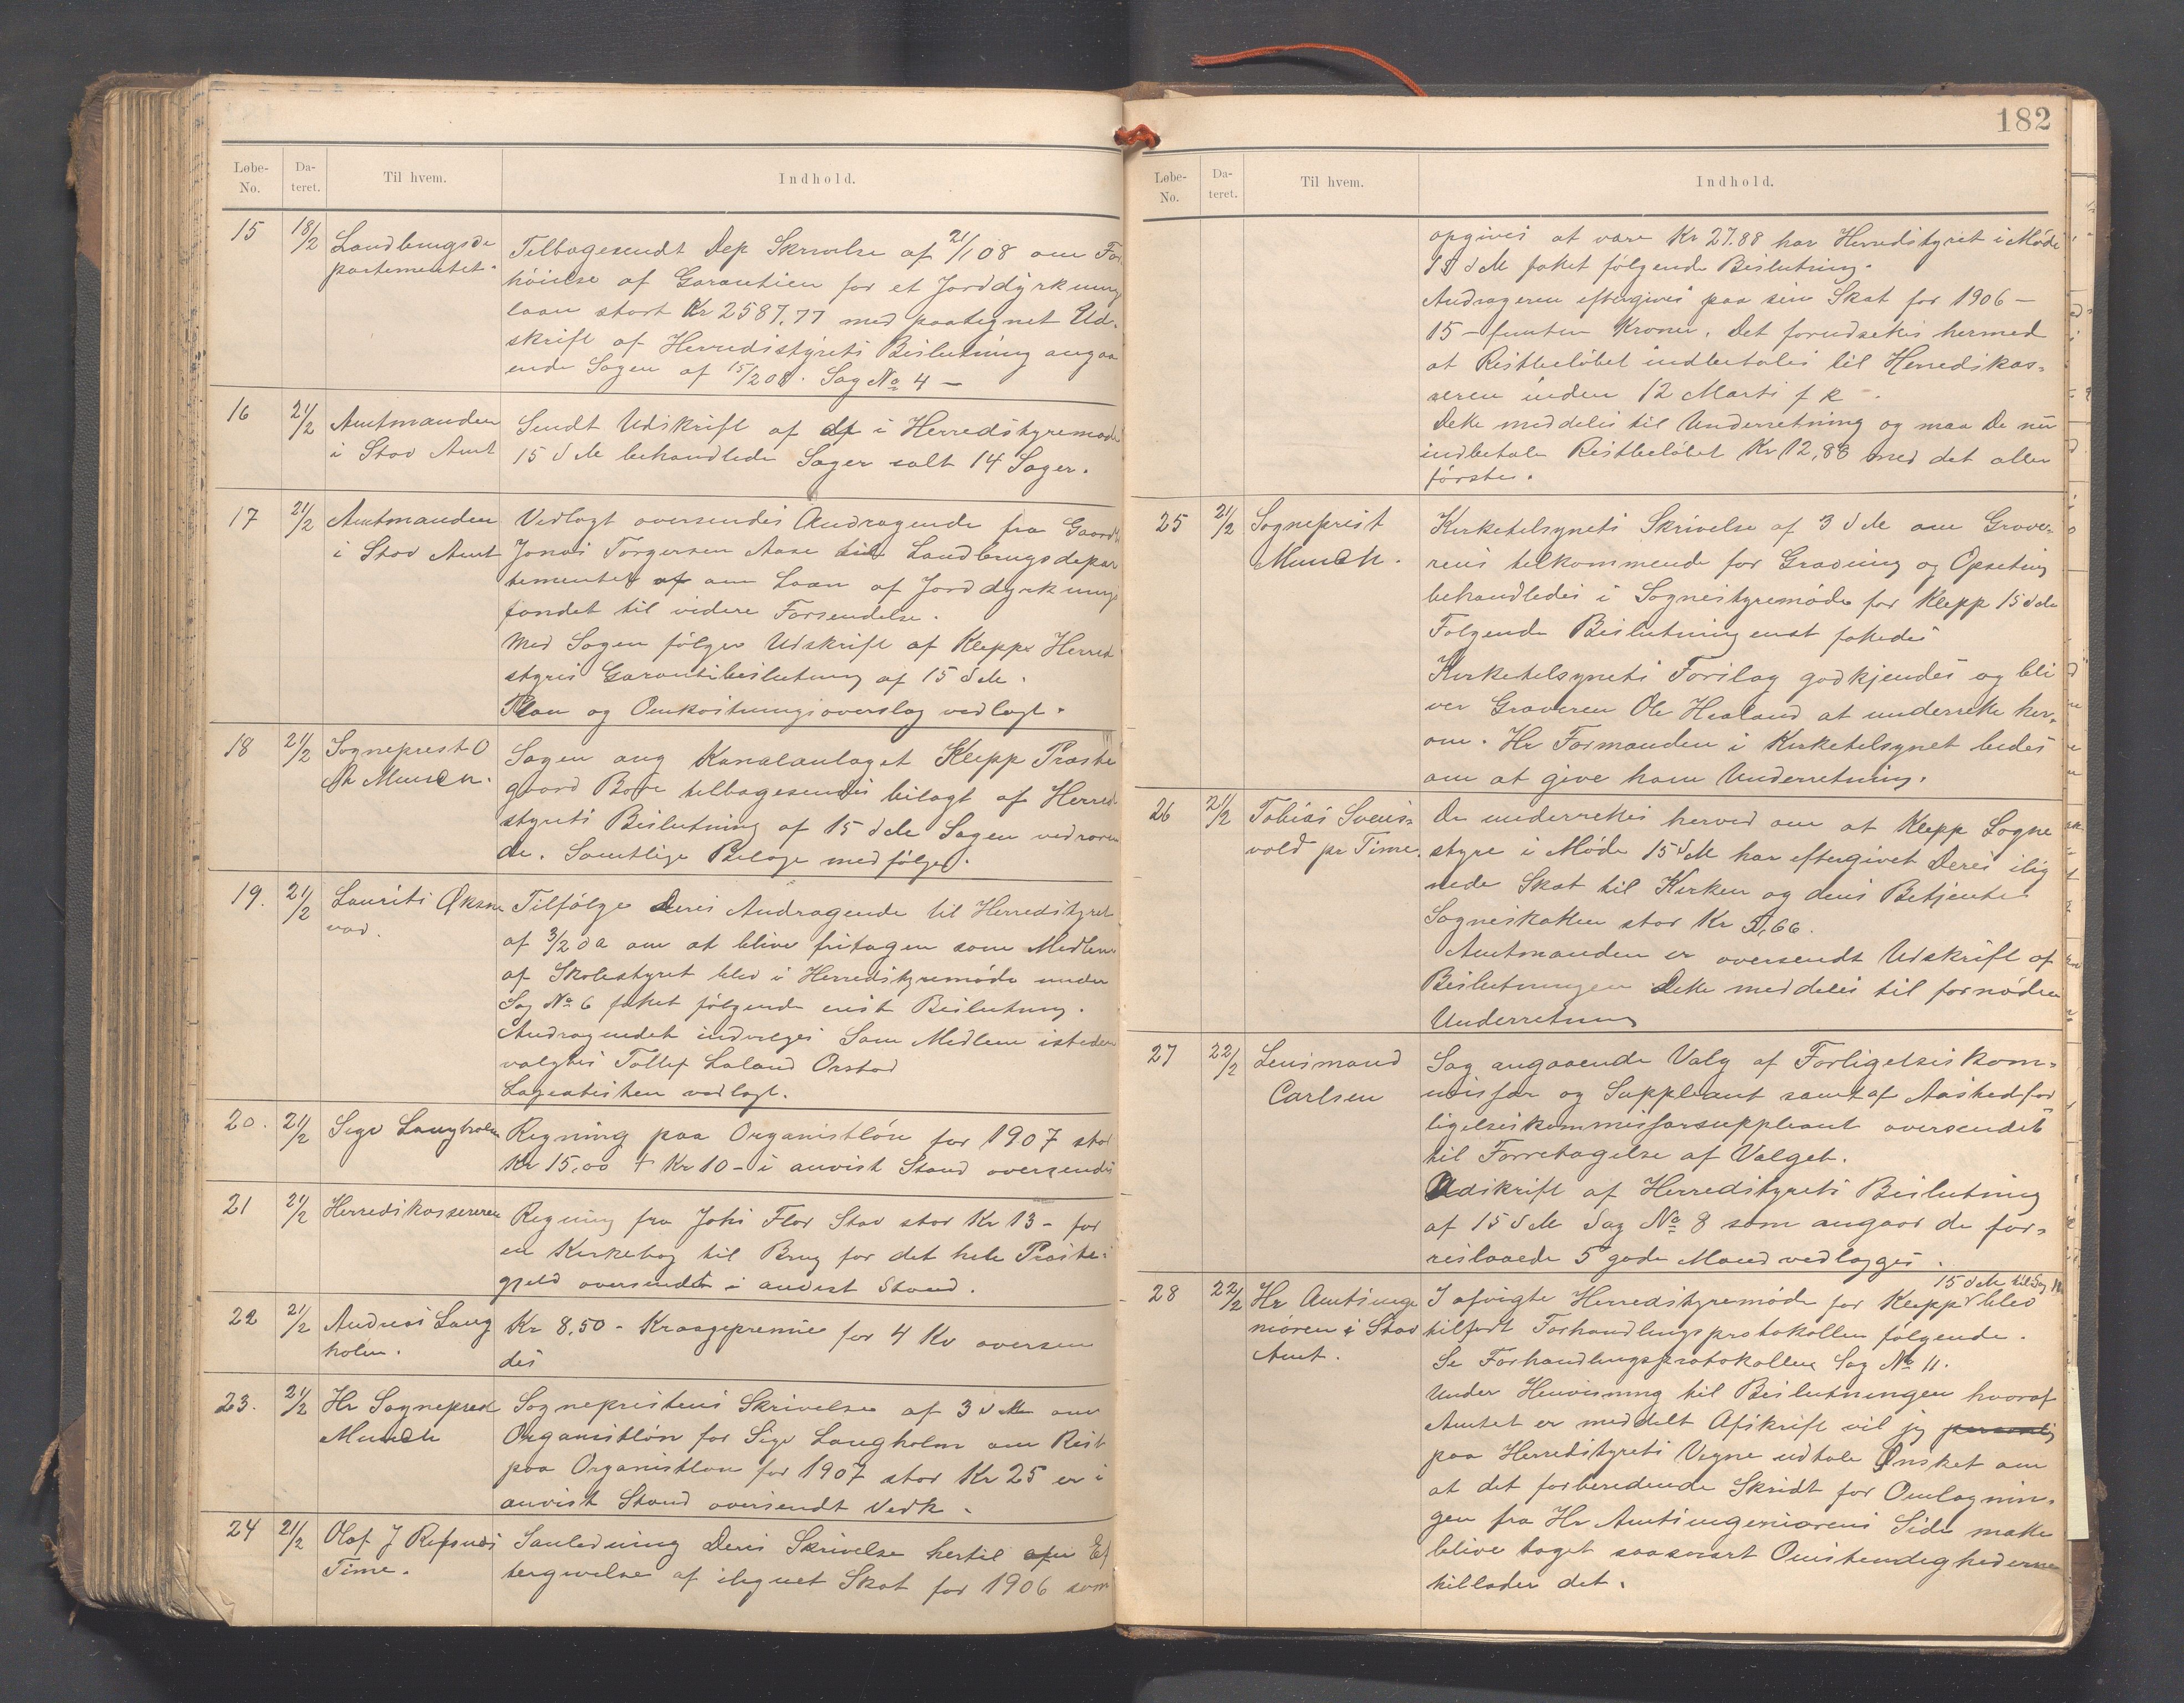 182
Løbe-No. Da-teret. Til hvem. Indhold.
15 18/2 Landbrugsde partementet. Tilbagesendt Dep Skrivelse af 21/1 08 om For
høielse af Garantien for et Jorddyrkning
laan stort Kr 2587,77 med paategnet Ud-
skrift af Herredstyrets Beslutning angaa
ende Sagen af 15/2 08. Sag No 4 —
16 21/2 Amtmanden i Stav Amt Sendt Udskrift af de i Herredstyremøde
15 d M behandlede Sager ialt 14 Sager.
17 21/2 Amtmanden i Stav Amt Vedlagt oversendes Andragende fra Gaardb
Jonas Torgersen Aase til Landbrugsdepar
tementet om Laan af Jorddyrknings
fondet til videre Forsendelse.
Med Sagen følger Udskrift af Klepps Herred
styres Garantibeslutning af 15 d M.
Plan og Omkostningsoverslag vedlagt.
18 21/2 Sogneprest O Munch. Sagen ang Kanalanlaget Klepp Præste
gaard Bore tilbagesendes bilagt af Herred
styrets Beslutning af 15 d M Sagen vedrøren
de. Samtlige Bilage medfølger.
19. 21/2 Laurits Øksne vad. Tilfølge Deres Andragende til Herredstyret
af 3/2 d a om at blive fritagen som Medlem
af Skolestyret blev i Herredstyremøde under
Sag No 6 fattet følgende enst Beslutning.
Andragendet indvilges Som Medlem isteden
valgtes Tollef Laland Orstad
Lægeattesten vedlagt.
20. 21/2 Sigv Langholm Regning paa Organistløn for 1907 stor
Kr 15,00 + Kr 10 - i anvist Stand oversendes
21 21/2 Herredskassereren Regning fra Johs Flor Stav stor Kr 13 - for
en Kirkebog til Brug for det hele Præste-
gjeld oversendt i anvist Stand.
22 21/2 Andreas Lang holm. Kr 8,50 - Kraagepremie for 4 Kv oversen
des
23. 21/2 Hr Sogneprest Munch Sogneprestens Skrivelse af 3 d M om
Organistløn for Sigv Langholm om Rest
paa Organistløn for 1907 stor Kr 25 er i
anvist Stand oversendt Vedk.
24 21/2 Olaf J Refsnes Time. I anledning Deres Skrivelse hertil om Ef
tergivelse af ilignet Skat for 1906 som
Løbe-No. Da-teret. Til hvem. Indhold.
opgives at være Kr 27.88 har Herredstyret i Møde
15 d M fattet følgende Beslutning.
Andrageren eftergives paa sin Skat for 1906 —
15 - femten Kroner. Det forudsættes hermed
at Restbeløbet indbetales til Herredskas-
seren inden 12 Marts f k -.
Dette meddeles til Underretning og maa De nu
indbetale Restbeløbet Kr 12,88 med det aller
første.
25 21/2 Sogneprest Munch. Kirketilsynets Skrivelse af 3 d M om Graver-
rens tilkommende for Gravning og Opseting
behandledes i Sognestyremøde for Klepp 15 d M
Følgende Beslutning enst fattedes
Kirketilsynets Forslag godkjendes og bli
ver Graveren Ole Healand at underrette her-
om. Hr Formanden i Kirketilsynet bedes
om at give ham Underretning.
26 21/2 Tobias Svens- vold pr Time. De underrettes herved om at Klepp Sogne
styre i Møde 15 d M har eftergivet Deres ilig
nede Skat til Kirken og dens Betjente
Sogneskatten stor Kr 5,66.
Amtmanden er oversendt Udskrift af
Beslutningen Dette meddeles til fornøden
Underretning
27 22/2 Lensmand Carlsen Sag angaaende Valg af Forligelseskom-
misær og Suppleant samt af Aastedfor
ligelseskommissærsuppleant oversendes
til Foretagelse af Valget.
Udskrift af Herredstyrets Beslutning
af 15 d M Sag No 8 som angaar de for-
reslaaede 5 gode Mænd vedlægges.
28 22/2 Hr Amtsinge niøren i Stav Amt. I afvigte Herredstyremøde for Klepp 15 d M blev
tilført Forhandlingsprotokollen følgende.
Se Forhandlingsprotokollen Sag No 11.
Under Henvisning til Beslutningen hvoraf
Amtet er meddelt Afskrift vil jeg
paa Herredstyrets Vegne udtale Ønsket om
at det forberedende Skridt for Omlægnin-
gen fra Hr Amtsingeniørens Side maatte
blive taget saasnart Omstendighederne
tillader det.